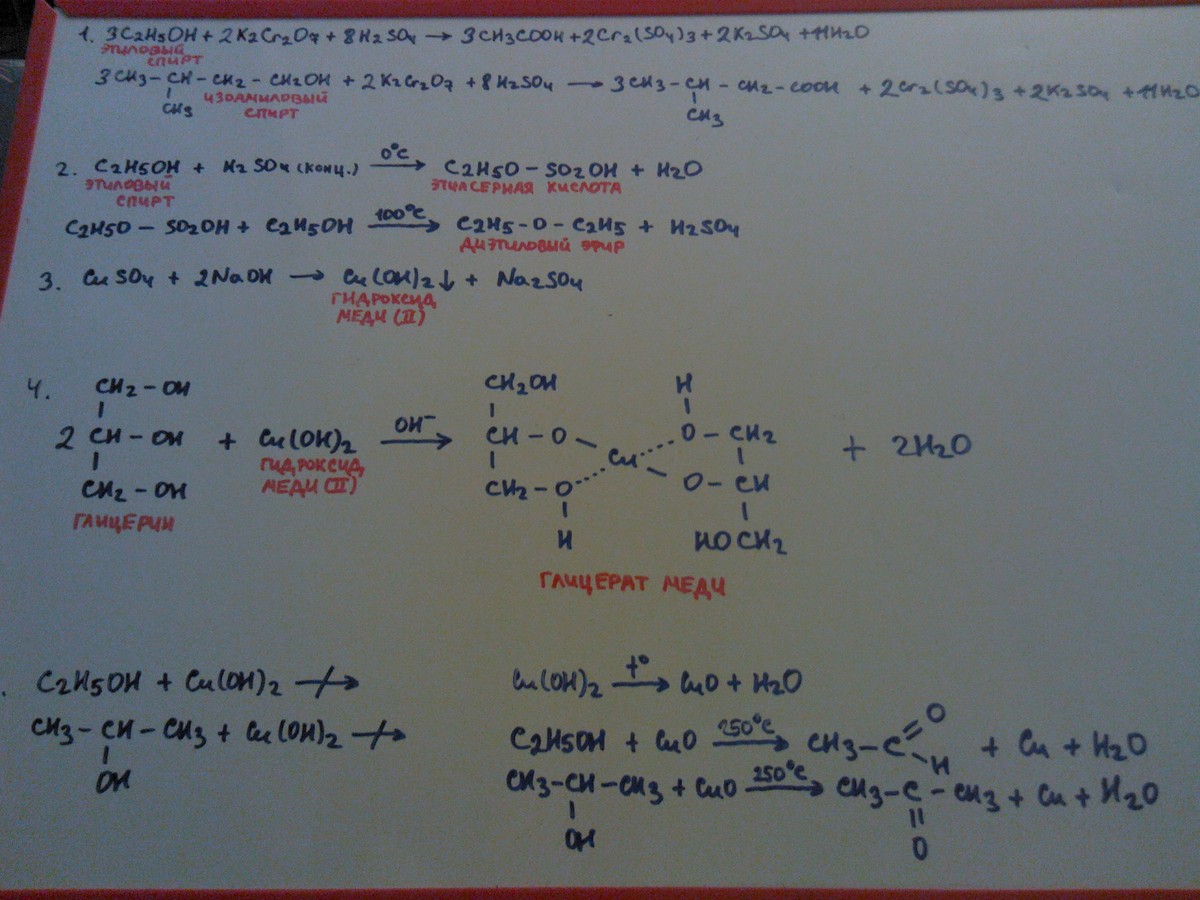 1. 3C2H5OH + 2K2Cr2O7 + 8H2SO4 → 3CH3COOH + 2Cr2(SO4)3 + 2K2SO4 + 11H2O
ЭТИЛОВЫЙ
СПИРТ
3CH3 - CH - CH2 - CH2OH + 2K2Cr2O7 + 8H2SO4 → 3CH3 - CH - CH2 - COOH + 2Cr2(SO4)3 + 2K2SO4 + 11H2O
CH3 ИЗОАМИЛОВЫЙ CH3
СПИРТ
2. C2H5OH + H2SO4 (КОНЦ.) 0°C → C2H5O - SO2OH + H2O
ЭТИЛОВЫЙ ЭТИЛСЕРНАЯ КИСЛОТА
СПИРТ
C2H5O - SO2OH + C2H5OH 100°C → C2H5 - O - C2H5 + H2SO4
ДИЭТИЛОВЫЙ ЭФИР
3. CuSO4 + 2NaOH → Cu(OH)2↓ + Na2SO4
ГИДРОКСИД
МЕДИ (II)
4. CH2 - OH CH2OH H
2 CH - OH + Cu(OH)2 OH⁻ → CH - O Cu O - CH2 + 2H2O
ГИДРОКСИД
МЕДИ (II)
CH2 - OH CH2 - O O - CH
ГЛИЦЕРИН H HOCH2
ГЛИЦЕРАТ МЕДИ
. C2H5OH + Cu(OH)2 ↛ Cu(OH)2 t° → CuO + H2O
CH3 - CH - CH3 + Cu(OH)2 ↛
OH
C2H5OH + CuO 250°C → CH3 - C O H + Cu + H2O
CH3 - CH - CH3 + CuO 250°C → CH3 - C - CH3 + Cu + H2O
OH O